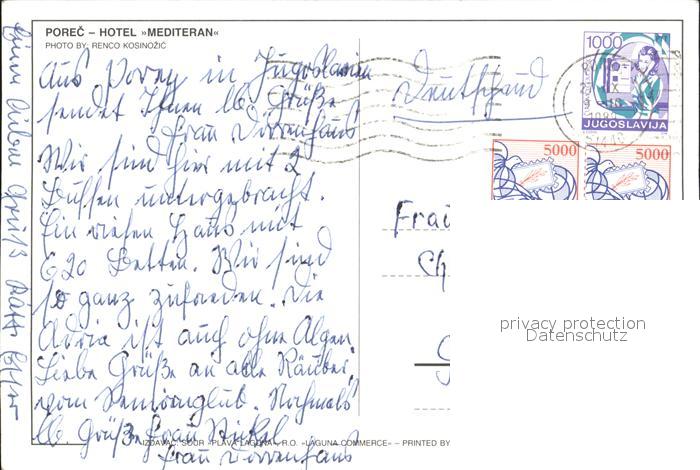 POREČ – HOTEL »MEDITERAN«
PHOTO BY: RENCO KOSINOŽIĆ
Aus Poreč in Jugoslavien
sendet Ihnen lb. Grüße
Frau
Wir sind hier mit 2
Bussen untergebracht.
Ein riesen Haus mit
620 Betten. Wir sind
so ganz zufrieden. Die
Adria ist auch ohne Algen.
Liebe Grüße an alle Räuber
vom Seniorenclub. Nochmals
lb. Grüße Frau Nickel
Frau
lieben Gruß
Deutschland
1000
JUGOSLAVIJA
5000
5000
Frau
Ch
privacy protection
Datenschutz
IZDAVAČ: SOUR »PLAVA LAGUNA«, R.O. »LAGUNA COMMERCE« – PRINTED BY